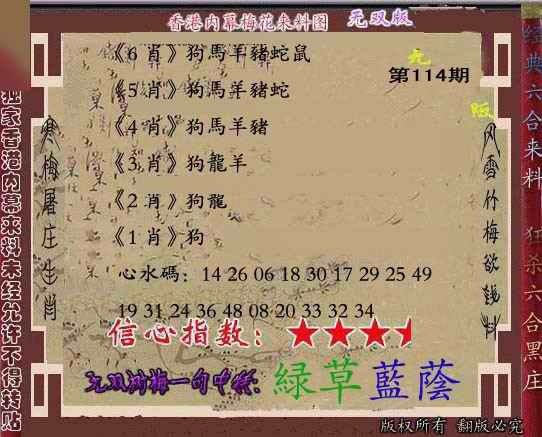 香港内幕梅花来料图 无双版
第114期
《6 肖》狗馬羊豬蛇鼠
《5 肖》狗馬羊豬蛇
《4 肖》狗馬羊豬
《3 肖》狗龍羊
《2 肖》狗龍
《1 肖》狗
心水碼：14 26 06 18 30 17 29 25 49
19 31 24 36 48 08 20 33 32 34
信心指数：
綠草藍蔭
版权所有 翻版必究
独家香港内幕来料未经允许不得转贴
寒梅屠庄生肖
经典六合来料 狂杀六合黑庄